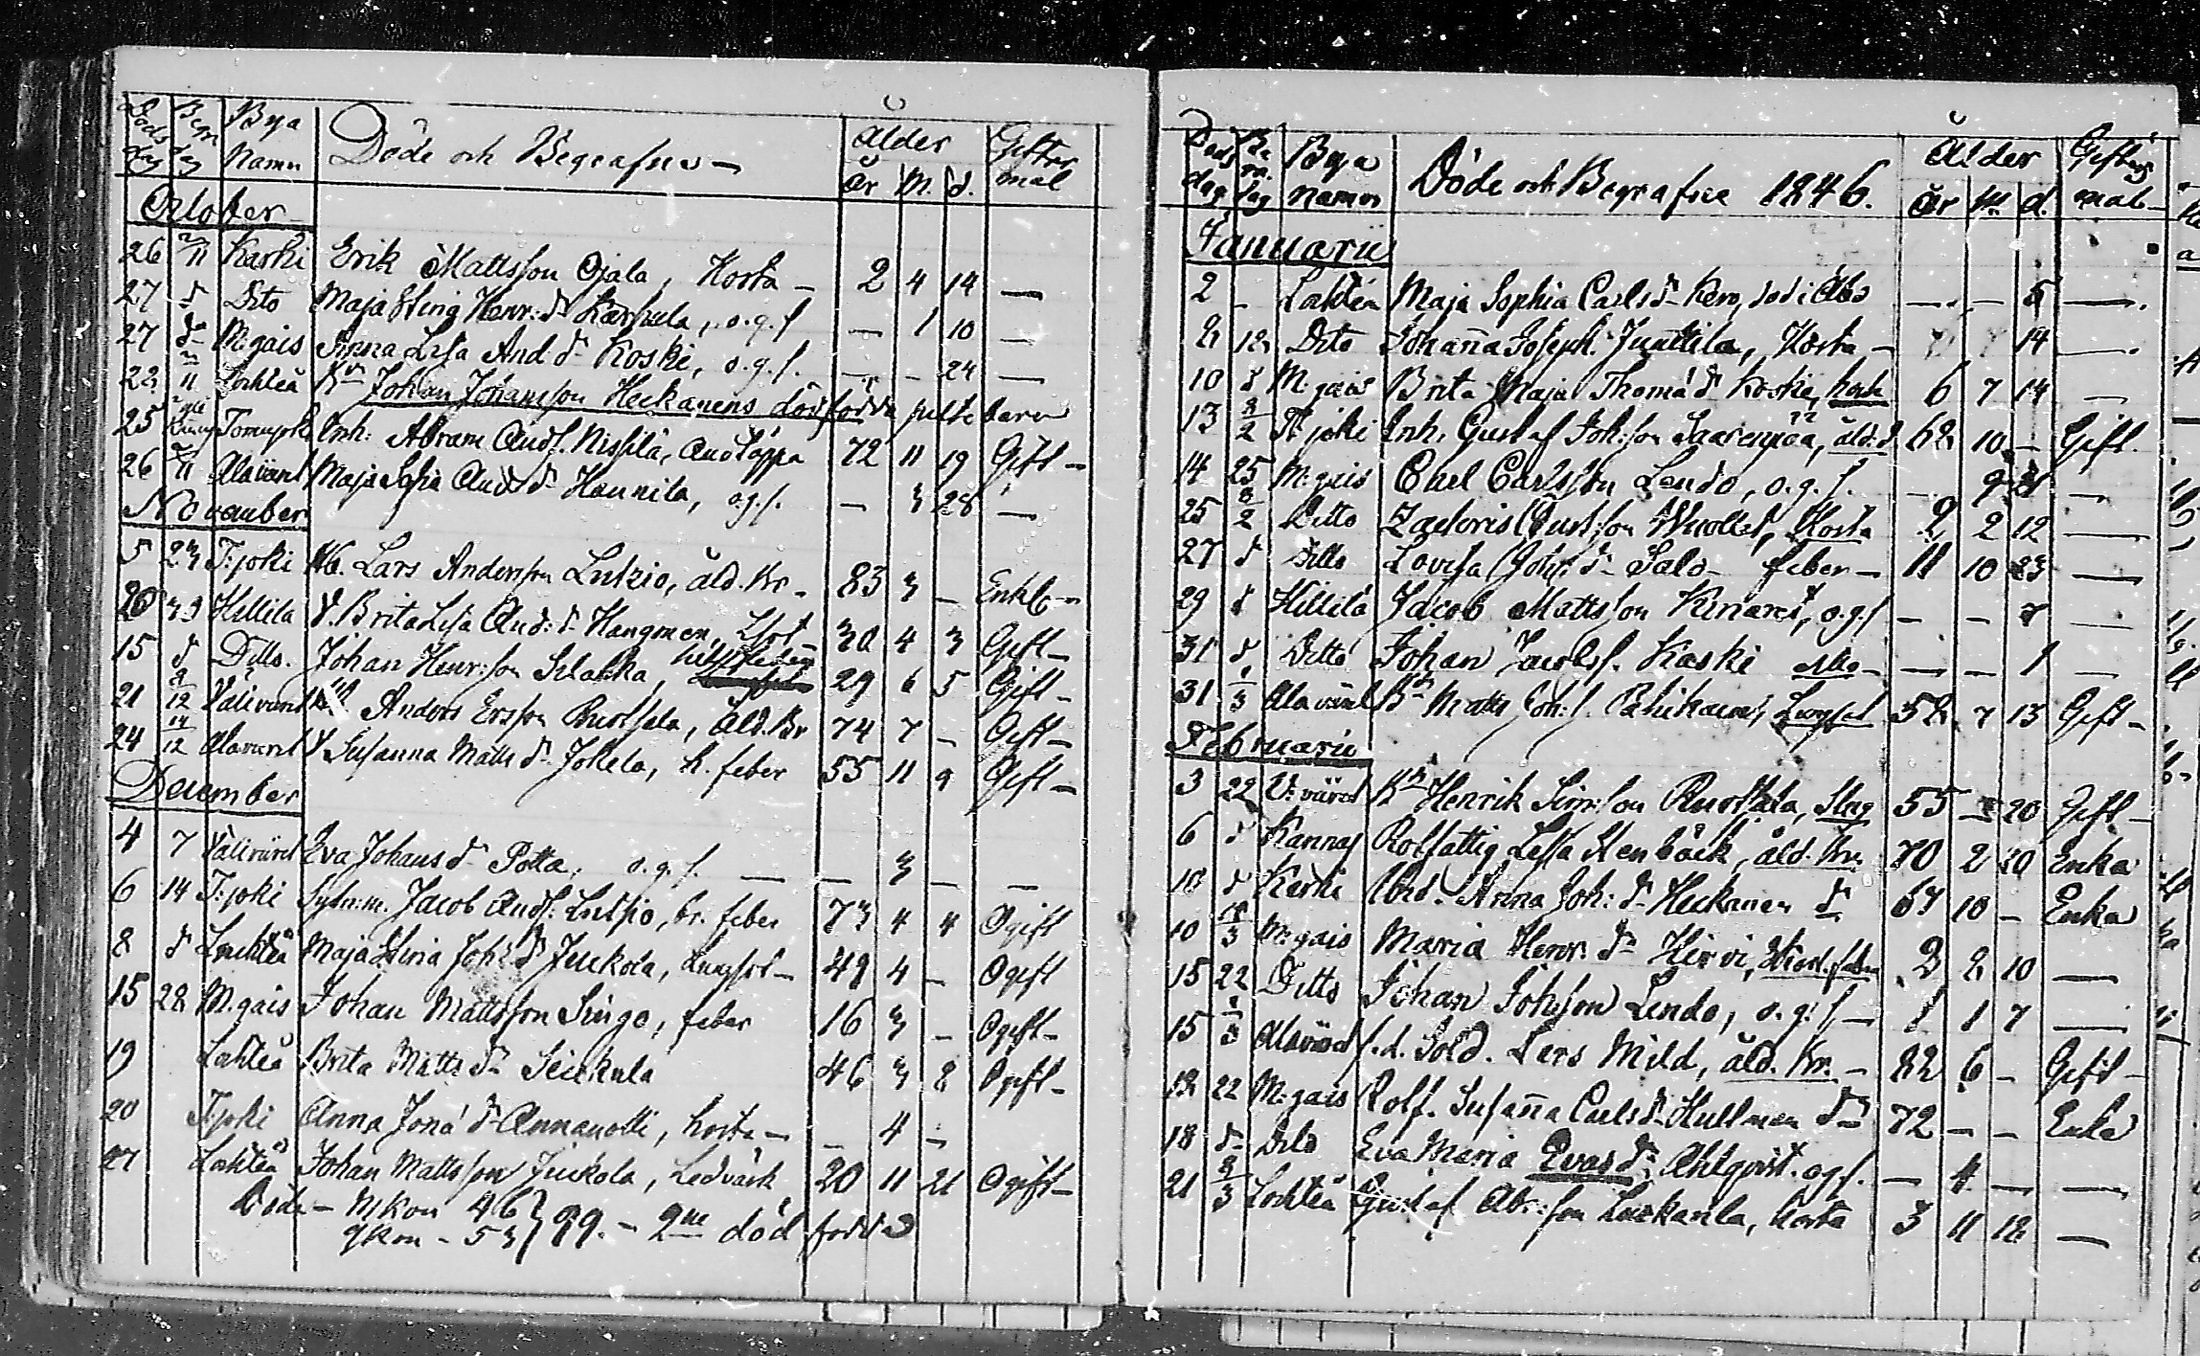 Döds dag Begr dag Bya Namn Döde och Begrafne Ålder År M. d. Gifter mål
October
26 2/11 Karhi Erik Mattsson Ojala, Hosta - 2 4 14 —
27 d Dito Maja Stina Henr: dr Karhula, o.g.s — 1 10 —
27 dr M:gais Anna Lisa And dr Koski, o.g.s. — — 24 —
22 11 Lochteå Bn Johan Johansson Heckanens dödfödda barn
25 Tomujoki Inh: Abram Ands. Nissilä, 72 11 19 Gift -
26 11 Alaviirret Maja Sofia And dr Hannila, o.g.s. — 3 28 —
November
5 23 T:joki Lars Andersson Lutzio, åld. Kr. 83 3 — Enkl-
20 23 Hillilä Brita Lisa And: dr Hangmen, Lsot 30 4 3 Gift -
15 d Ditto. Johan Henr:son 29 6 5 Gift -
21 12 Väliviirret Anders Ersson Ruotsala, Åld. Br 74 7 — Gift -
24 14/12 Alaviirret Susanna Matts dr Jokela, h. feber 55 11 9 Gift -
December
4 7 Väliviirret Eva Johans dr Potta, o.g.s. — — 3 — —
6 14 T:joki Jacob Ands: Lutzio, br. feber 73 4 4 Ogift
8 d Lochteå Maja Stina Joh: dr Juckola, Lungsot - 49 4 — Ogift
15 28 M:gais Johan Mattsson Singo, feber 16 3 — Ogift -
19 Lochteå Brita Matts dr 46 3 8 Ogift -
20 T:joki Anna Jona dr Annanolli, hosta - — 4 —
27 Lochteå Johan Mattsson Juckola, Ledvärk 20 11 21 Ogift -
Döde - Mkön 46 } 99. - 2ne död födda
qkön - 53
Döds dag Be gra. dag Bya namn Döde och Begrafne 1846. Ålder År M d. Giftermål
Januarii
2 - Lochteå Maja Sophia Carls dr Kero, död i — — 5 —.
2 12 Dito Johanna Joseph. Junttila, Hosta - 14 —.
10 d M:gais Brita Maja Thoma dr Koski, hosta 6 7 14 —
13 8/2 T:joki Inh. Gustaf Joh:son Saarenpää, åld. 62 10 — Gift.
14 25 M:gais Carl Carlsson Lendo, o.g.s. — 9 21 —
25 8/2 Ditto Zachris Gust:son Wuollet, Hosta 2 2 12 —
27 d Ditto Lovisa Joh: dr Salo - feber - 11 10 23 —
29 d Hillilä Jacob Mattsson Kinares, o.g.s — — 7 —
31 d Ditto Johan Jacobss. Kaski dito - — — 1 —
31 1/3 Alaviirret Bn Matts Joh: s. Pahikainen, Lungsot 52 7 13 Gift -
Februarii
3 22 V:viirret Bn Henrik Sim:son Ruotsala, Slag 55 — 20 Gift -
6 d Kannas Rotfattig Lisa Stenbäck, åld. Kr. 70 2 20 Enka
10 d Karhi Anna Joh: dr Heckanen d 67 10 — Enka
10 3 M:gais Maria Henr. dr Hirvi, feber 2 2 10 —
15 22 Ditto Johan Johsson Lendo, o.g.s — 1 1 7 —
15 1/3 Alaviirret f.d. Sold. Lars Mild, åld. Kr. - 82 6 — Gift -
12 22 M:gais Rotf. Susanna Carls dr Hullman dr 72 — — Enka
18 dr Dito Eva Maria Evas dr Ahlqvist. ogs. — 4 — —
21 8/3 Lochteå Gustaf Abr:son Luckarila, hosta 3 11 12 —